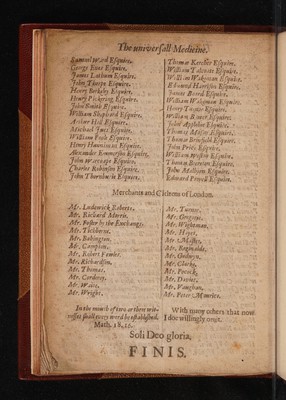 The universall Medicine.
Samuel Ward Esquire.
George Esquire.
James Latham Esquire.
John Thorpe Esquire.
Henry Berkeley Esquire.
Henry Pickering Esquire.
John Smith Esquire.
William Shepheard Esquire.
Arthur Hill Esquire.
Michael Esquire.
William Poole Esquire.
Henry Esquire.
Alexander Emmerson Esquire.
John Esquire.
Charles Robinson Esquire.
John Esquire.
Thomas Esquire.
William Talentes Esquire.
William Wakeman Esquire.
Edward Harrison Esquire.
James Baird Esquire.
William Wakeman Esquire.
Henry Esquire.
William Bower Esquire.
John Appleton Esquire.
Thomas Esquire.
Thomas Esquire.
John Price Esquire.
William Weston Esquire.
Thomas Esquire.
John Esquire.
Edward Powell Esquire.
Merchants and Citizens of London.
Mr. Lodowick Roberts.
Mr. Richard Morris.
Mr. Foster by the Exchange.
Mr. Tichborne.
Mr. Babington.
Mr. Complin.
Mr. Robert Fowler.
Mr. Richardson.
Mr. Thomas.
Mr. Cordwy.
Mr. Waite.
Mr. Wright.
Mr. Turner.
Mr. Gregorie.
Mr. Wightman.
Mr. Hoyet.
Mr. Master.
Mr. Reynolds.
Mr. Godwyn.
Mr. Clarke.
Mr. Pocock.
Mr. Davies.
Mr. Vaughan.
Mr. Peter Maurice.
In the mouth of two or three wit-
nesses shall every word be established.
Math. 18.
With many others that now
I doe willingly omit.
Soli Deo gloria.
FINIS.